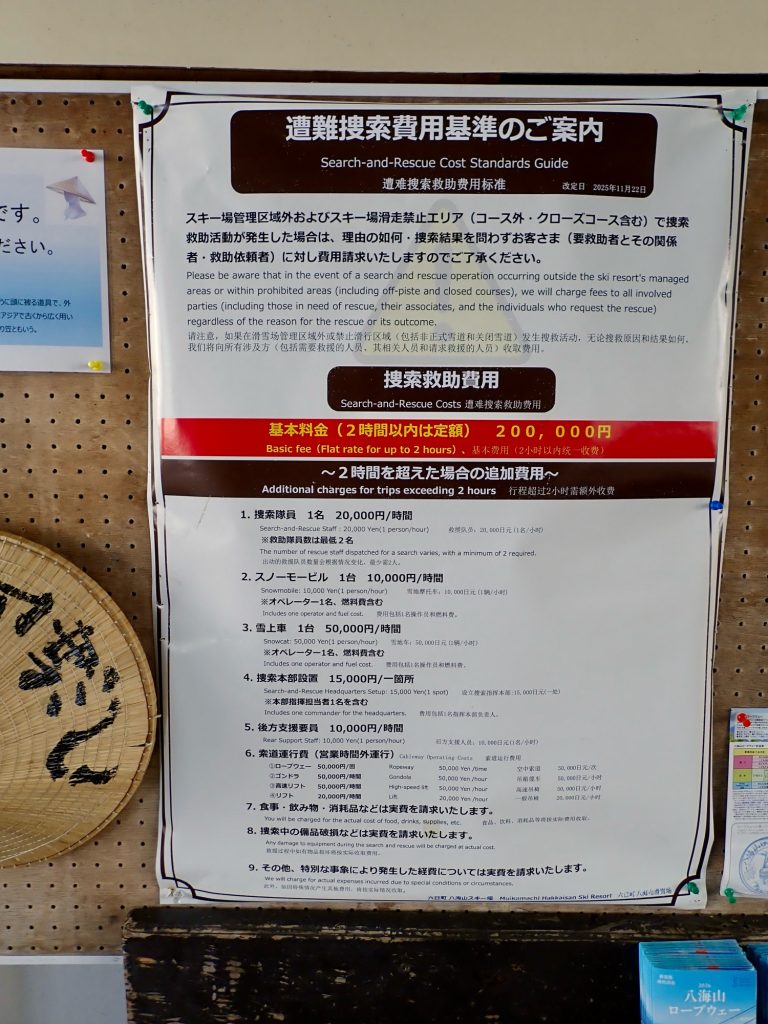 遭難捜索費用基準のご案内
Search-and-Rescue Cost Standards Guide
遭难搜索救助费用标准 改定日 2025年11月22日
スキー場管理区域外およびスキー場滑走禁止エリア（コース外・クローズコース含む）で捜索
救助活動が発生した場合は、理由の如何・捜索結果を問わずお客さま（要救助者とその関係
者・救助依頼者）に対し費用請求いたしますのでご了承ください。
Please be aware that in the event of a search and rescue operation occurring outside the ski resort's managed
areas or within prohibited areas (including off-piste and closed courses), we will charge fees to all involved
parties (including those in need of rescue, their associates, and the individuals who request the rescue)
regardless of the reason for the rescue or its outcome.
请注意，如果在滑雪场管理区域外或禁止滑行区域（包括非正式雪道和关闭雪道）发生搜救活动，无论搜救原因和结果如何，
我们将向所有涉及方（包括需要救援的人员、其相关人员和请求救援的人员）收取费用。
捜索救助費用
Search-and-Rescue Costs 遭难搜索救助费用
基本料金（２時間以内は定額） ２００，０００円
Basic fee（Flat rate for up to 2 hours）、基本费用（2小时以内统一收费）
～２時間を超えた場合の追加費用～
Additional charges for trips exceeding 2 hours 行程超过2小时需额外收费
1. 捜索隊員 1名 20,000円/時間
Search-and-Rescue Staff : 20,000 Yen(1 person/hour) 救援队员：20,000日元(1名/小时)
※救助隊員数は最低２名
The number of rescue staff dispatched for a search varies, with a minimum of 2 required.
出动的救援队员数量会根据情况变化，最少需2人。
2. スノーモービル 1台 10,000円/時間
Snowmobile: 10,000 Yen(1 person/hour) 雪地摩托车：10,000日元(1辆/小时)
※オペレーター1名、燃料費含む
Includes one operator and fuel cost. 费用包括1名操作员和燃料费。
3. 雪上車 1台 50,000円/時間
Snowcat: 50,000 Yen(1 person/hour) 雪地车：50,000日元(1辆/小时)
※オペレーター1名、燃料費含む
Includes one operator and fuel cost. 费用包括1名操作员和燃料费。
4. 捜索本部設置 15,000円/一箇所
Search-and-Rescue Headquarters Setup: 15,000 Yen(1 spot) 设立搜索指挥本部：15,000日元(一处)
※本部指揮担当者1名を含む
Includes one commander for the headquarters. 费用包括1名指挥本部负责人。
5. 後方支援要員 10,000円/時間
Rear Support Staff: 10,000 Yen(1 person/hour) 后方支援人员：10,000日元(1名/小时)
6. 索道運行費（営業時間外運行）Cableway Operating Costs 索道运行费用
①ロープウェー 50,000円/回 Ropeway 50,000 Yen /time 空中索道 50,000日元/次
②ゴンドラ 50,000円/時間 Gondola 50,000 Yen /hour 吊厢缆车 50,000日元/小时
③高速リフト 50,000円/時間 High-speed lift 50,000 Yen /hour 高速吊椅 50,000日元/小时
④リフト 20,000円/時間 Lift 20,000 Yen /hour 一般吊椅 20,000日元/小时
7. 食事・飲み物・消耗品などは実費を請求いたします。
You will be charged for the actual cost of food, drinks, supplies, etc. 食品、饮料、消耗品等将按实际费用收取。
8. 捜索中の備品破損などは実費を請求いたします。
Any damage to equipment during the search and rescue will be charged at actual cost.
救援过程中如有物品损坏将按实际收取费用。
9. その他、特別な事象により発生した経費については実費を請求いたします。
We will charge for actual expenses incurred due to special conditions or circumstances.
此外，如因特殊情况产生其他费用，将按实际情况收取。
六日町 八海山スキー場 Muikamachi Hakkaisan Ski Resort 六日町 八海山滑雪场
です。
ださい。
うに頭に被る道具で、外
アジアで古くから広く用い
り笠ともいう。
2026
八海山
ロープウェー